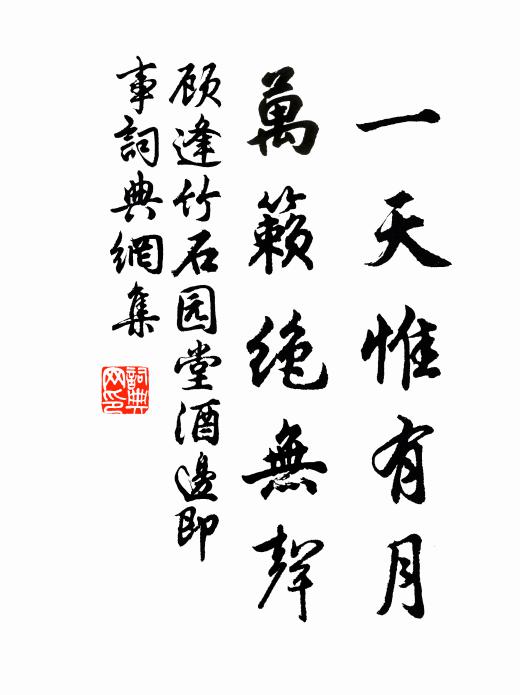 一天惟有月
萬籟絶無聲
顾逢竹石园堂酒邊即
事詞典網集
詞典
网印